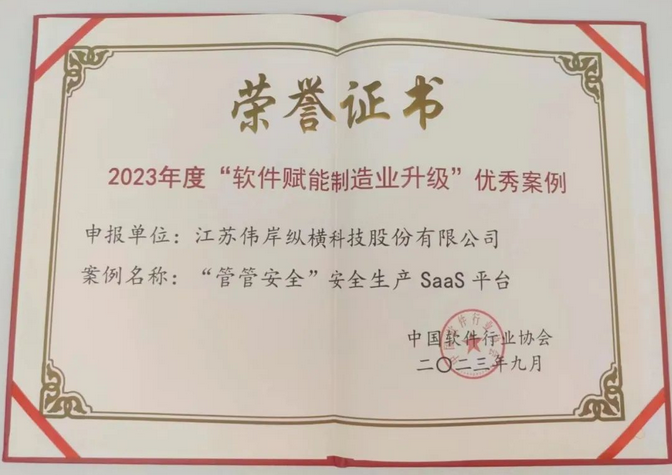 荣誉证书
2023年度“软件赋能制造业升级”优秀案例
申报单位：江苏伟岸纵横科技股份有限公司
案例名称：“管管安全”安全生产 SaaS 平台
中国软件行业协会
二〇二三年九月